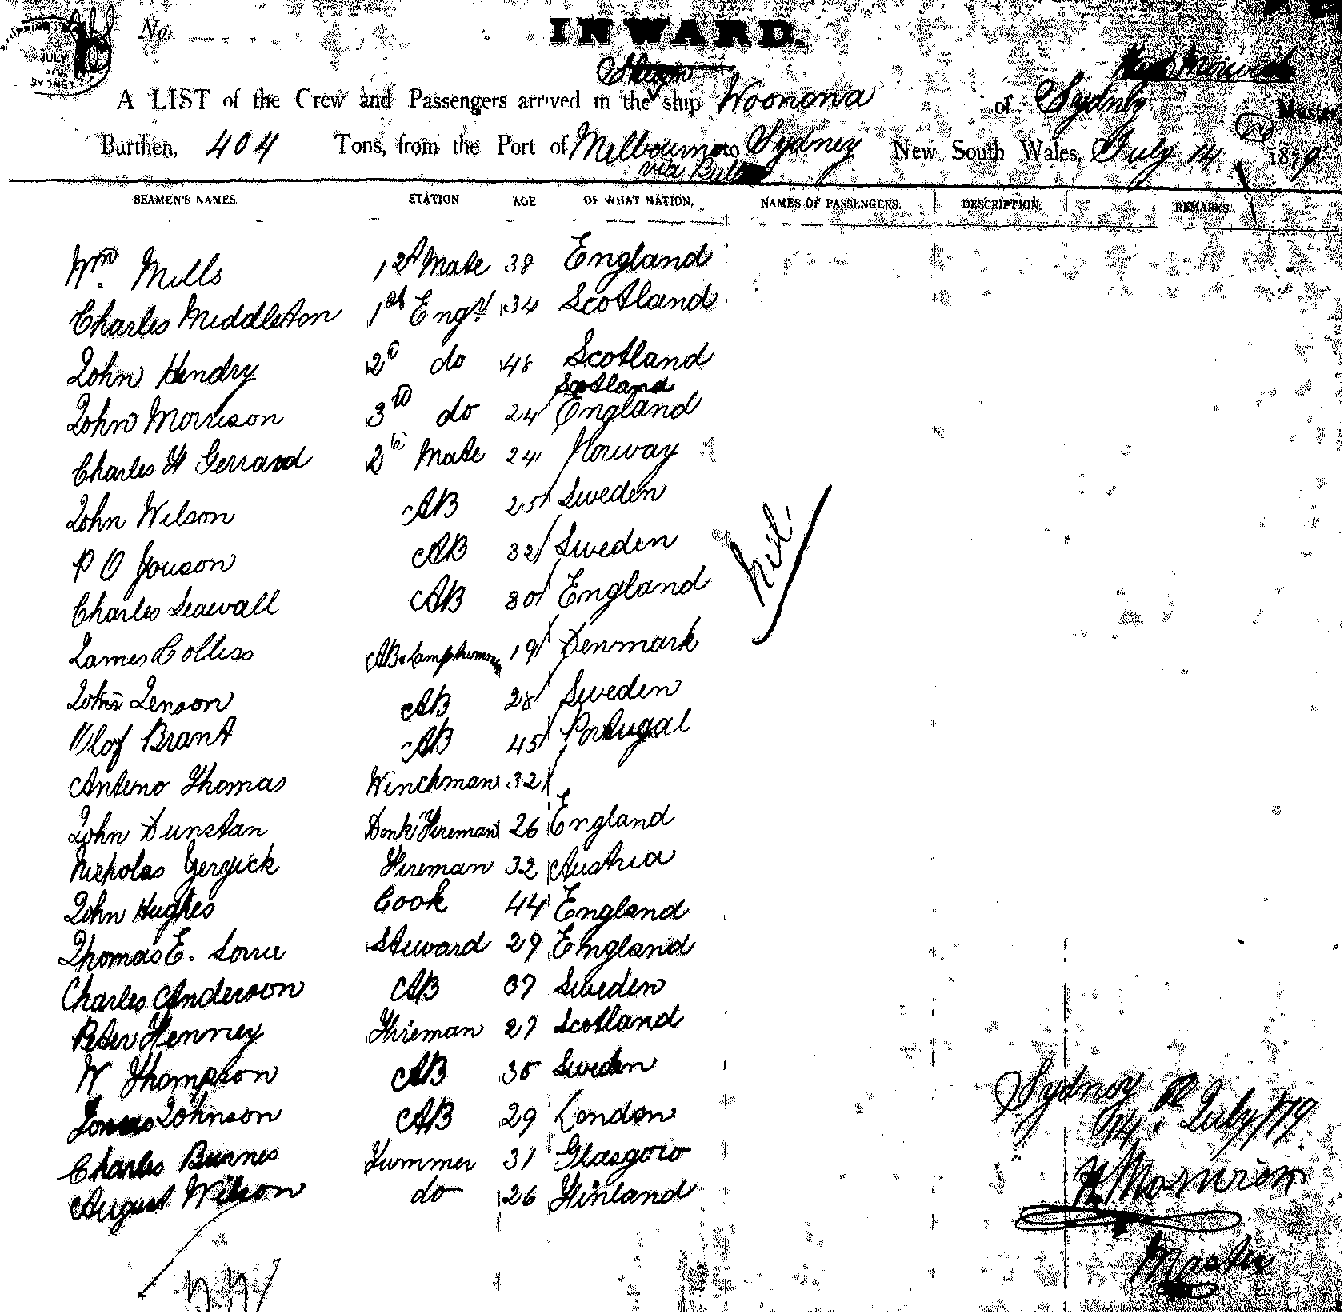 No.
INWARD.
Steam
A LIST of the Crew and Passengers arrived in the ship Woonona of Sydney Master
Burthen, 404 Tons, from the Port of Melbourne to Sydney New South Wales, July 14 1879
via
SEAMEN'S NAMES. STATION AGE OF WHAT NATION, NAMES OF PASSENGERS. DESCRIPTION. REMARKS.
Wm Mills 1st Mate 38 England
Charles Middleton 1st Engr 34 Scotland
John Hendry 2d do 48 Scotland
Scotland
John Morrison 3rd do 24 England
Charles H Gerrard 2nd Mate 24 Norway
John Wilson AB 25 Sweden
P O Jonson AB 32 Sweden
Charles Seawall AB 30 England
James Colless AB & Lamptrimmer 19 Denmark
John Jenson AB 28 Sweden
Olof Brant AB 45 Portugal
Anteno Thomas Winchman 32
John Dunstan Donk Fireman 26 England
Nicholas Gergick Fireman 32 Austria
John Hughes Cook 44 England
Thomas E. Steward 29 England
Charles Anderson AB 37 Sweden
Peter Fireman 27 Scotland
W Thompson AB 35 Sweden
Johnson AB 29 London
Charles Burnes Trimmer 31 Glasgow
August Wilson do 26 Finland
nil.
Sydney
14 July /79
Master